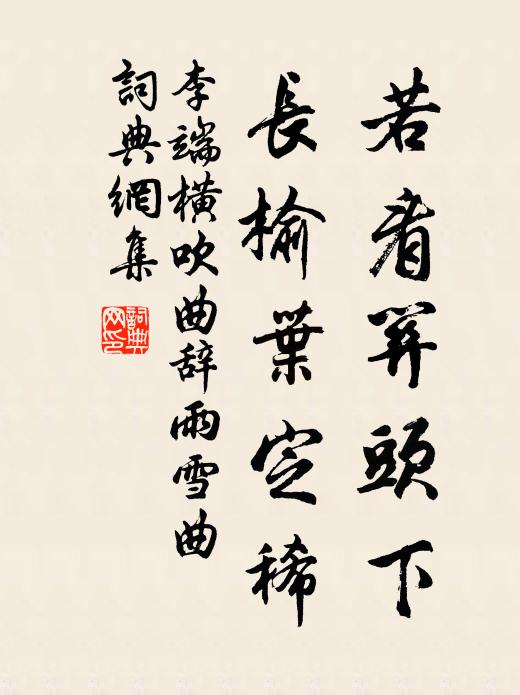 若看關頭下
長榆葉定稀
李端橫吹曲辞雨雪曲
詞典網集
詞典
网印